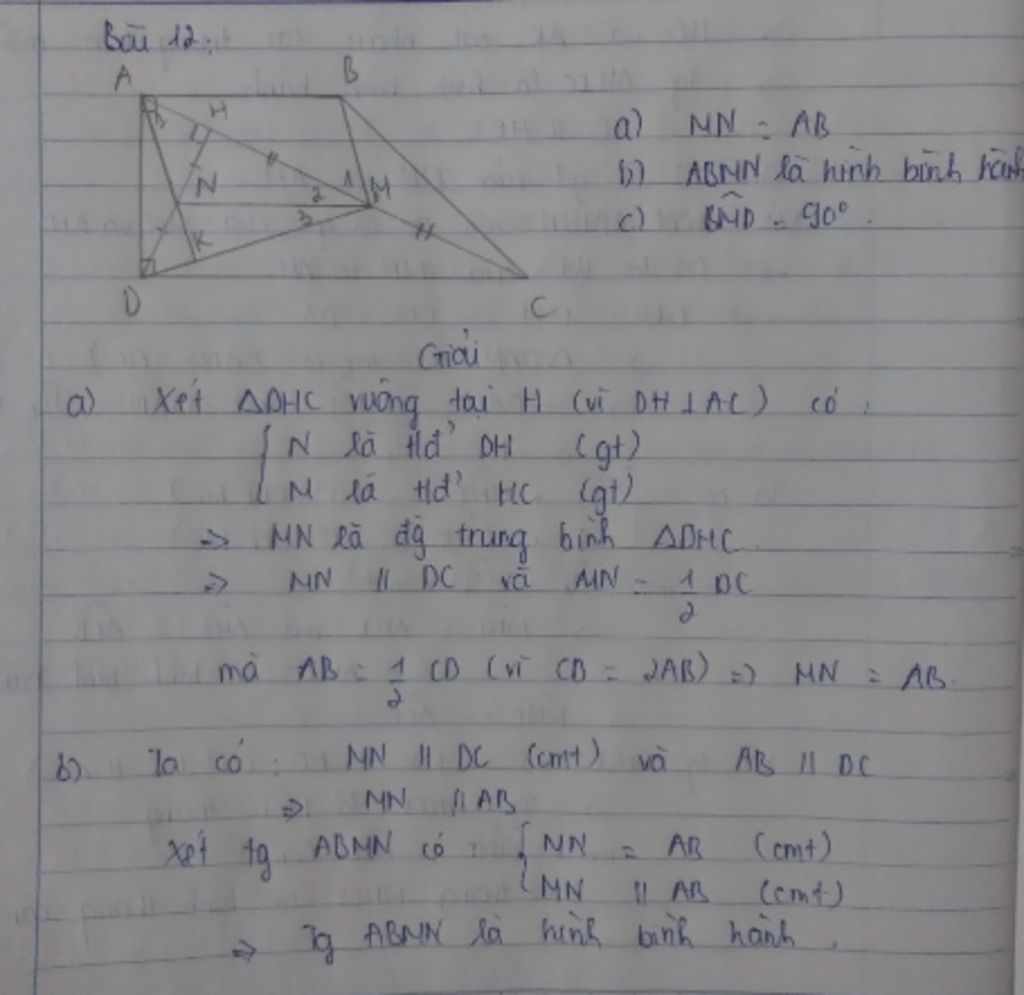 Bài 12:
A B
H
a) MN = AB
N 2 1 M
b) ABMN là hình bình hành
3
c) BMD = 90°.
K
D C
Giải
a) Xét ΔDHC vuông tại H (vì DH ⊥ AC) có:
{ N là tđ' DH (gt)
M là tđ' HC (gt)
=> MN là đg trung bình ΔDHC
=> MN // DC và MN = 1/2 DC
mà AB = 1/2 CD (vì CD = 2AB) => MN = AB.
b) Ta có: MN // DC (cmt) và AB // DC
=> MN // AB
Xét tg ABMN có { MN = AB (cmt)
MN // AB (cmt)
=> Tg ABMN là hình bình hành.